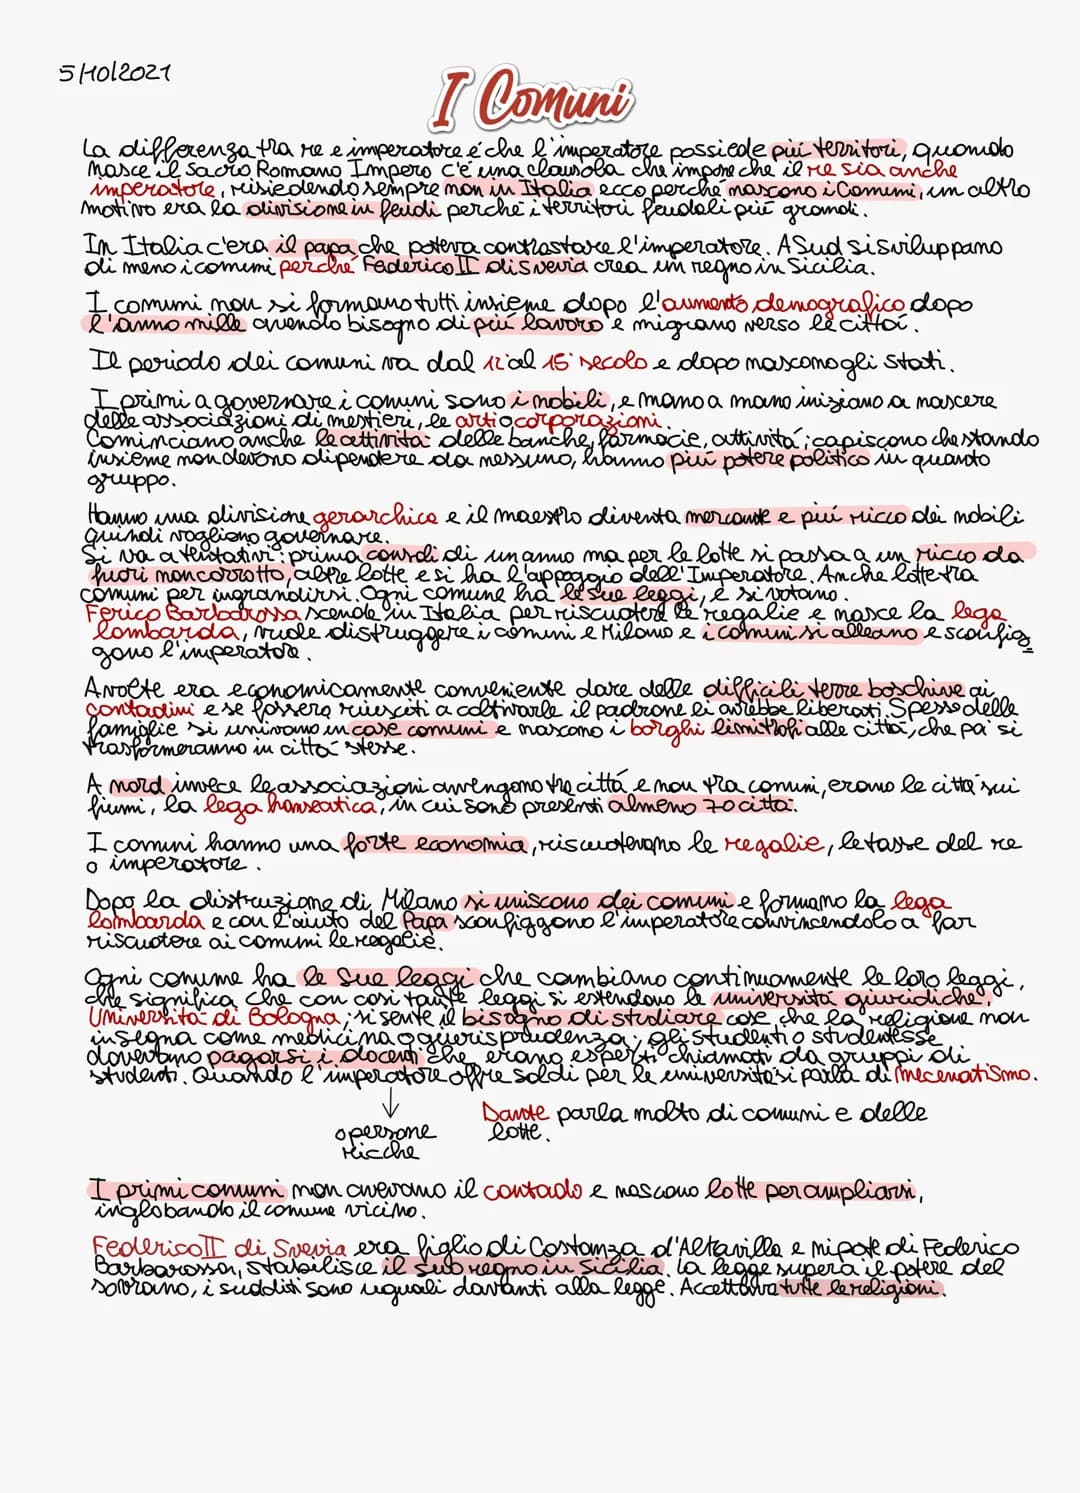 5/10/2021
I Comuni
La differenza tra re e imperatore é che l'imperatore possiede più territori, quando
nasce il Sacro Romano Impero c'é una clausola che impone che il re sia anche
imperatore, risiedendo sempre non in Italia ecco perché nascono i Comuni, un altro
motivo era la divisione in feudi perché i territori feudali più grandi.
In Italia c'era il papa che poteva contrastare l'imperatore. A Sud si sviluppano
di meno i comuni perché Federico II di svevia crea un regno in Sicilia.
I comuni non si formano tutti insieme dopo l'aumento demografico dopo
l'anno mille avendo bisogno di più lavoro e migrano verso le città.
Il periodo dei comuni va dal 12° al 15° secolo e dopo nascono gli stati.
I primi a governare i comuni sono i nobili, e mano a mano iniziano a nascere
delle associazioni di mestieri, le arti o corporazioni.
Cominciano anche le attività delle banche, farmacie, attività; capiscono che stando
insieme non devono dipendere da nessuno, hanno più potere politico in quanto
gruppo.
Hanno una divisione gerarchica e il maestro diventa mercante e più ricco dei nobili
quindi vogliono governare.
Si va a tentativi: prima consoli di un anno ma per le lotte si passa a un ricco da
fuori non corrotto, altre lotte e si ha l'appoggio dell'Imperatore. Anche lotte tra
comuni per ingrandirsi. Ogni comune ha le sue leggi, e si votano.
Ferico Barbarossa scende in Italia per riscuotere le regalie e nasce la lega
lombarda, vuole distruggere i comuni e Milano e i comuni si alleano e sconfig
gono l'imperatore.
A volte era economicamente conveniente dare delle difficili terre boschive ai
contadini e se fossero riusciti a coltivarle il padrone li avrebbe liberati. Spesso delle
famiglie si univano in case comuni e nascono i borghi limitrofi alle città, che poi si
trasformeranno in città stesse.
A nord invece le associazioni avvengono tra città e non tra comuni, erano le città sui
fiumi, la lega hanseatica, in cui sono presenti almeno 70 città.
I comuni hanno una forte economia, riscuotevano le regalie, le tasse del re
o imperatore.
Dopo la distruzione di Milano si uniscono dei comuni e formano la lega
lombarda e con l'aiuto del Papa sconfiggono l'imperatore convincendolo a far
riscuotere ai comuni le regalie.
Ogni comune ha le sue leggi che cambiano continuamente le loro leggi,
che significa che con così tante leggi si estendono le università giuridiche,
Università di Bologna; si sente il bisogno di studiare cose che la religione non
insegna come medicina o giurisprudenza; gli studenti o studentesse
dovevano pagarsi i docenti che erano esperti chiamati da gruppi di
studenti. Quando l'imperatore offre soldi per le università si parla di mecenatismo.
↓
o persone
ricche
Dante parla molto di comuni e delle
lotte.
I primi comuni non avevano il contado e nascono lotte per ampliarsi,
inglobando il comune vicino.
Federico II di Svevia era figlio di Costanza d'Altavilla e nipote di Federico
Barbarossa, stabilisce il suo regno in Sicilia. La legge supera il potere del
sovrano, i sudditi sono uguali davanti alla legge. Accettava tutte le religioni.